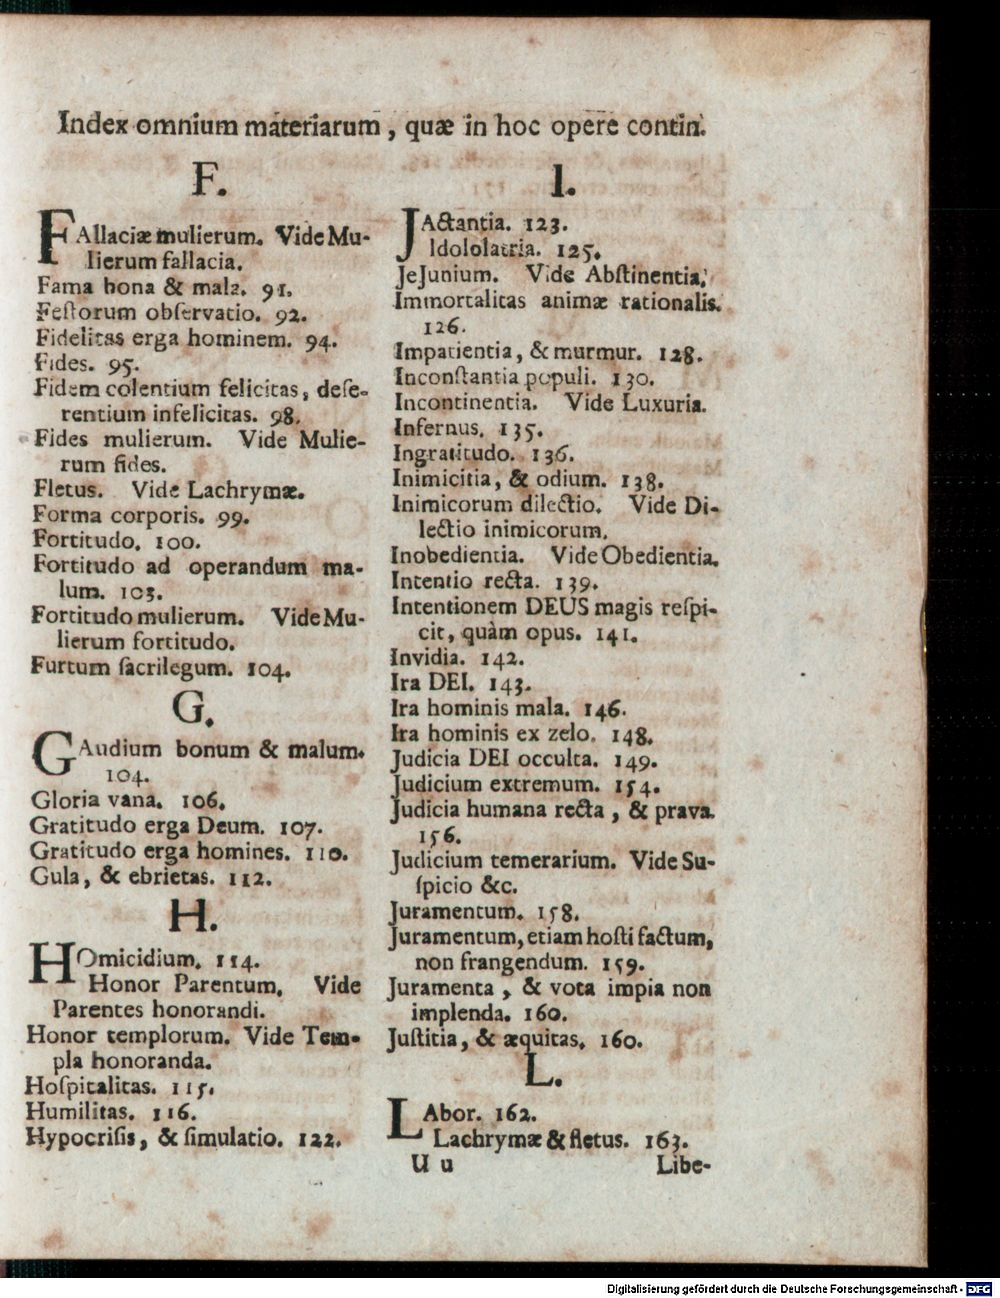 Index omnium materiarum, quæ in hoc opere contin.
F.
FAllaciæ mulierum. Vide Mu-
lierum fallacia.
Fama bona & mala. 91.
Feſtorum obſervatio. 92.
Fidelitas erga hominem. 94.
Fides. 95.
Fidem colentium felicitas, deſe-
rentium infelicitas. 98.
Fides mulierum. Vide Mulie-
rum fides.
Fletus. Vide Lachrymæ.
Forma corporis. 99.
Fortitudo. 100.
Fortitudo ad operandum ma-
lum. 103.
Fortitudo mulierum. Vide Mu-
lierum fortitudo.
Furtum ſacrilegum. 104.
G.
GAudium bonum & malum.
104.
Gloria vana. 106.
Gratitudo erga Deum. 107.
Gratitudo erga homines. 110.
Gula, & ebrietas. 112.
H.
HOmicidium. 114.
Honor Parentum. Vide
Parentes honorandi.
Honor templorum. Vide Tem-
pla honoranda.
Hoſpitalitas. 115.
Humilitas. 116.
Hypocriſis, & ſimulatio. 122.
I.
JActantia. 123.
Idololatria. 125.
JeJunium. Vide Abſtinentia.
Immortalitas animæ rationalis.
126.
Impatientia, & murmur. 128.
Inconſtantia populi. 130.
Incontinentia. Vide Luxuria.
Infernus. 135.
Ingratitudo. 136.
Inimicitia, & odium. 138.
Inimicorum dilectio. Vide Di-
lectio inimicorum.
Inobedientia. Vide Obedientia.
Intentio recta. 139.
Intentionem DEUS magis reſpi-
cit, quàm opus. 141.
Invidia. 142.
Ira DEI. 143.
Ira hominis mala. 146.
Ira hominis ex zelo. 148.
Judicia DEI occulta. 149.
Judicium extremum. 154.
Judicia humana recta, & prava.
156.
Judicium temerarium. Vide Su-
ſpicio &c.
Juramentum. 158.
Juramentum, etiam hoſti factum,
non frangendum. 159.
Juramenta, & vota impia non
implenda. 160.
Juſtitia, & æquitas. 160.
L.
LAbor. 162.
Lachrymæ & fletus. 163.
U u
Libe-
Digitalisierung gefördert durch die Deutsche Forschungsgemeinschaft - DFG